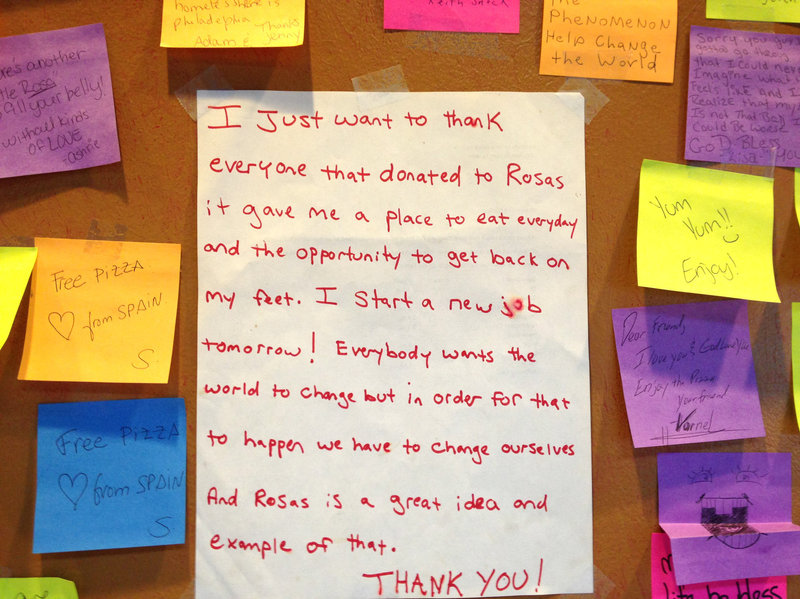 homeless here is
philadelphia Thanks
Adam & Jenny
Keith
The
PheNOMENON
Help Change
the World
another
Rosa
fill your belly!
without kinds
of LOVE
that I could never
Imagine what
Feels like and I
Realize that my
Is not that Bad I
Could Be worse
GoD Bless
I Just want to thank
everyone that donated to Rosas
it gave me a place to eat everyday
and the opportunity to get back on
my feet. I Start a new job
tomorrow! Everybody wants the
world to change but in order for that
to happen we have to change ourselves
And Rosas is a great idea and
example of that.
THANK YOU!
Free PIZZA
from SPAIN
S.
Free PIZZA
from SPAIN
S
Yum
Yum!!
Enjoy!
Dear Friend,
I love you & God loves you
Enjoy the Pizza
Your friend